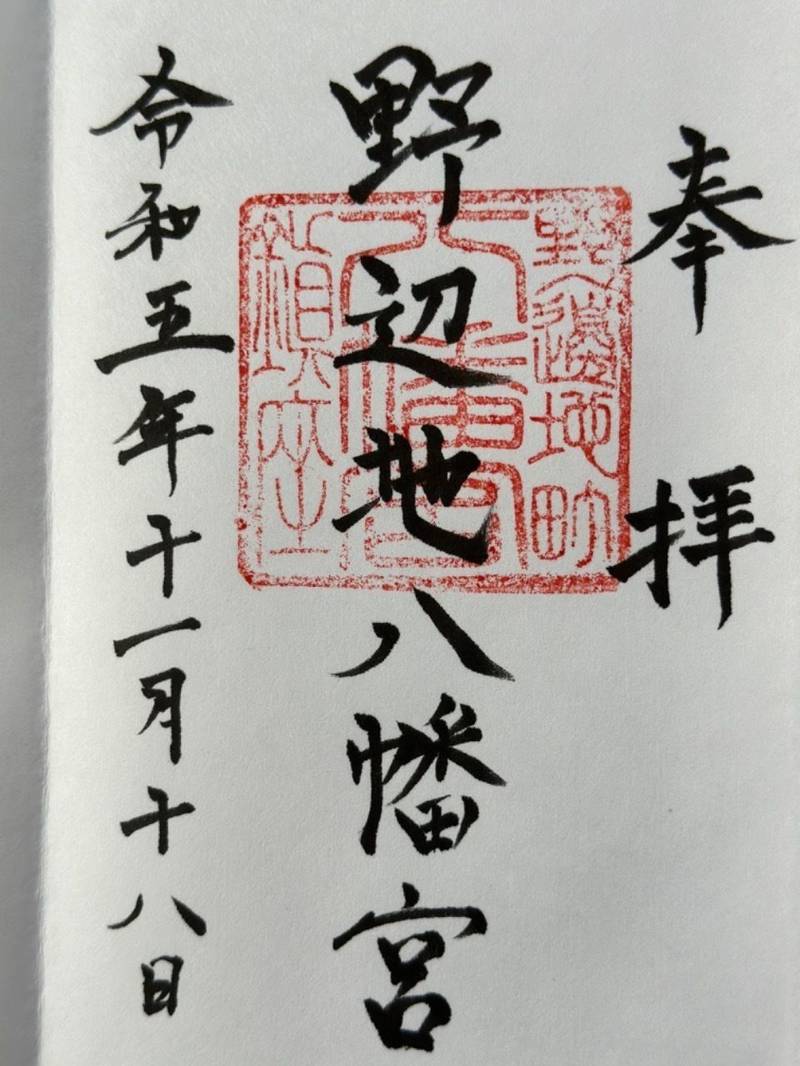 奉拝
野辺地八幡宮
野邊地町
八幡宮
鎮座
令和五年十一月十八日